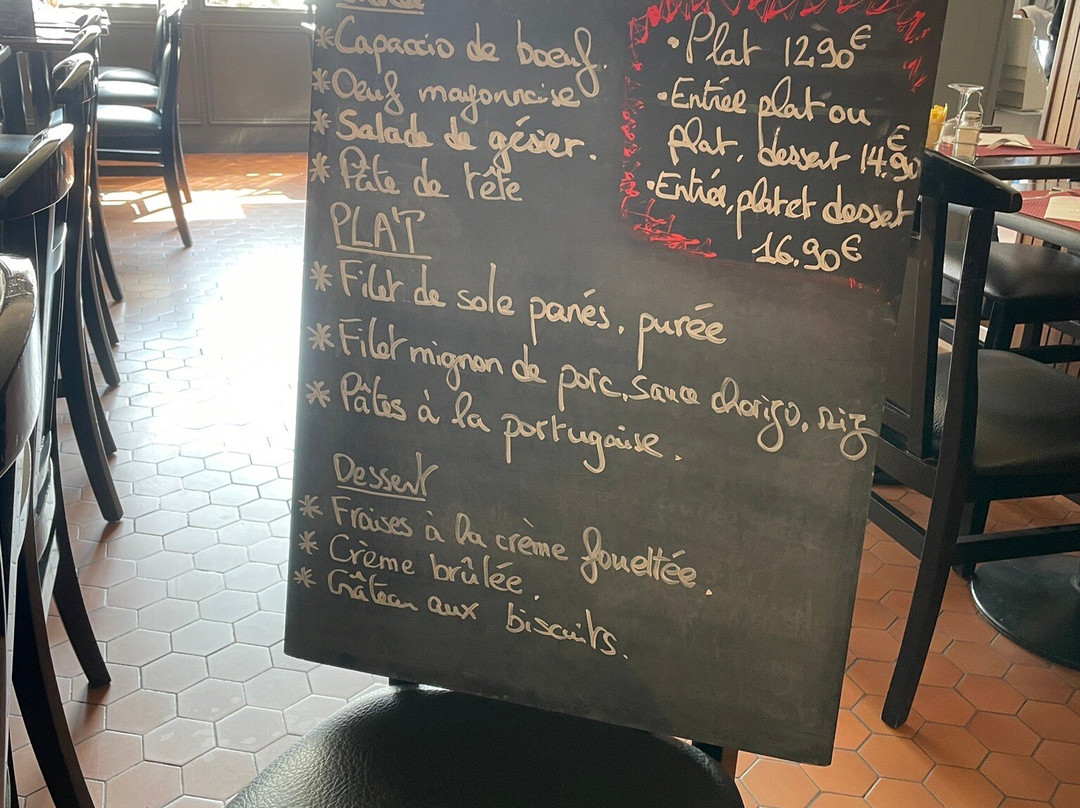 *Capaccio de boeuf.
*Oeuf mayonnaise
*Salade de gésier.
*Pâte de tête
PLAT
*Filet de sole panés, purée
*Filet mignon de porc, sauce chorizo, riz
*Pâtes à la portugaise.
Dessert
*Fraises à la crème fouettée.
*Crème brûlée.
*Gâteau aux biscuits.
•Plat 12,90€
•Entrée plat ou
plat, dessert 14,90€
•Entrée, plat et dessert
16,90€